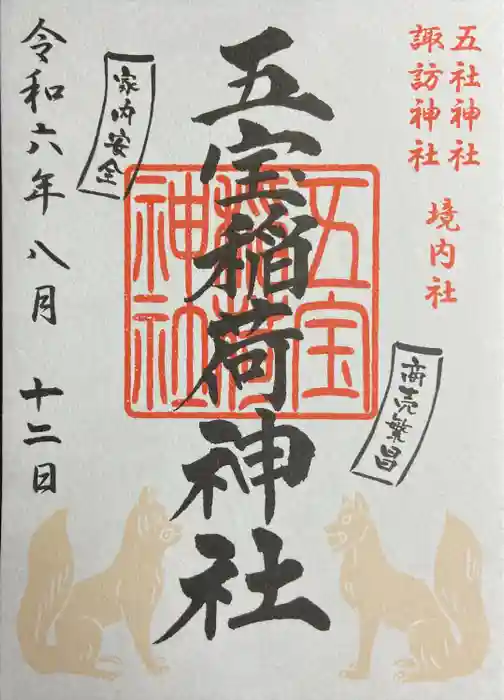 五社神社
諏訪神社
境内社
五宝稲荷神社
五宝
稲荷
神社
商売繁昌
家内安全
令和六年八月十二日